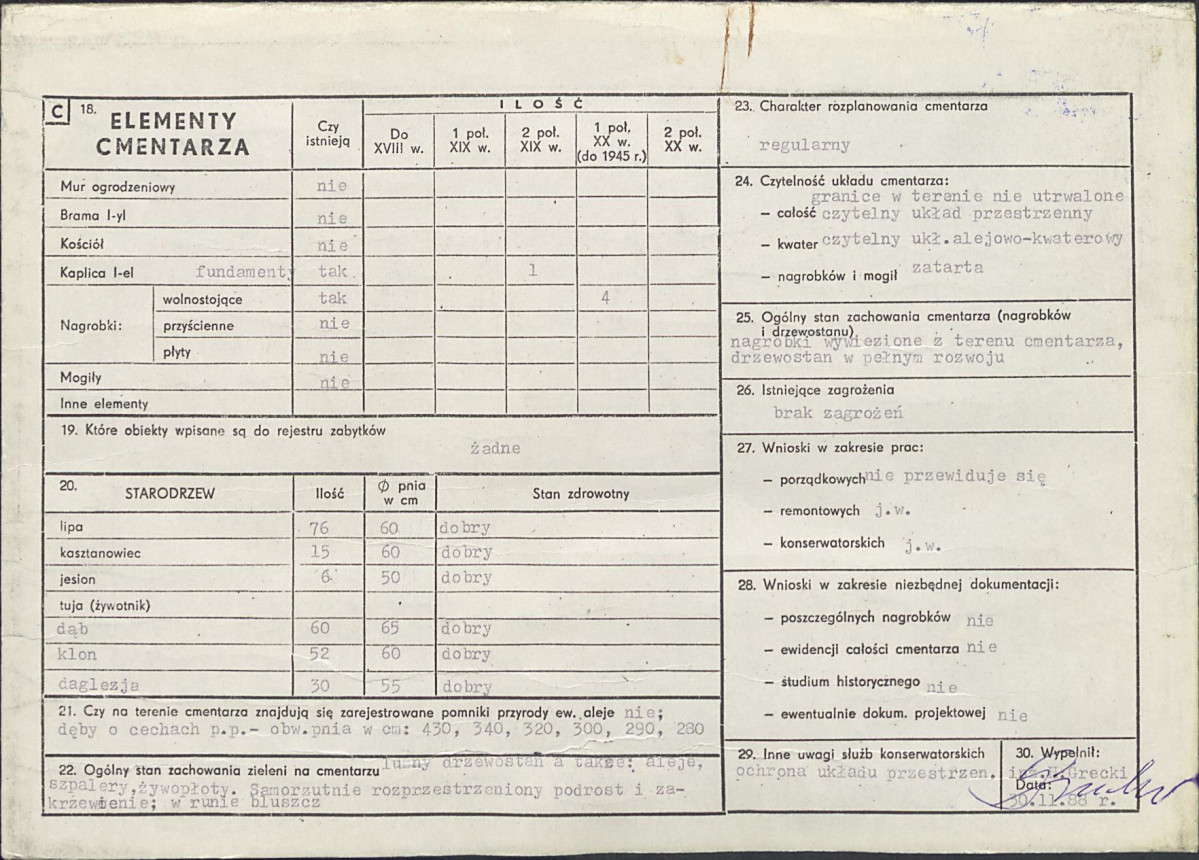 C 18. ELEMENTY CMENTARZA
Czy istnieją
ILOŚĆ
Do XVIII w.
1 poł. XIX w.
2 poł. XIX w.
1 poł. XX w. (do 1945 r.)
2 poł. XX w.
Mur ogrodzeniowy nie
Brama I-yl nie
Kościół nie
Kaplica I-el fundamenty tak 1
Nagrobki:
wolnostojące tak 4
przyścienne nie
płyty nie
Mogiły nie
Inne elementy
19. Które obiekty wpisane są do rejestru zabytków
żadne
20. STARODRZEW Ilość Ø pnia w cm Stan zdrowotny
lipa 76 60 dobry
kasztanowiec 15 60 dobry
jesion 6 50 dobry
tuja (żywotnik)
dąb 60 65 dobry
klon 52 60 dobry
daglezja 30 55 dobry
21. Czy na terenie cmentarza znajdują się zarejestrowane pomniki przyrody ew. aleje nie;
dęby o cechach p.p.- obw.pnia w cm: 430, 340, 320, 300, 290, 280
22. Ogólny stan zachowania zieleni na cmentarzu luźny drzewostan a także: aleje,
szpalery,żywopłoty. Samorzutnie rozprzestrzeniony podrost i za-
krzewienie; w runie bluszcz
23. Charakter rozplanowania cmentarza
regularny
24. Czytelność układu cmentarza:
granice w terenie nie utrwalone
– całość czytelny układ przestrzenny
– kwater czytelny ukł.alejowo-kwaterowy
– nagrobków i mogił zatarta
25. Ogólny stan zachowania cmentarza (nagrobków
i drzewostanu)
nagrobki wywiezione z terenu cmentarza,
drzewostan w pełnym rozwoju
26. Istniejące zagrożenia
brak zagrożeń
27. Wnioski w zakresie prac:
– porządkowych nie przewiduje się
– remontowych j.w.
– konserwatorskich j.w.
28. Wnioski w zakresie niezbędnej dokumentacji:
– poszczególnych nagrobków nie
– ewidencji całości cmentarza nie
– studium historycznego nie
– ewentualnie dokum. projektowej nie
29. Inne uwagi służb konserwatorskich
ochrona układu przestrzen.
30. Wypełnił:
Grecki
Data:
30.11.88 r.